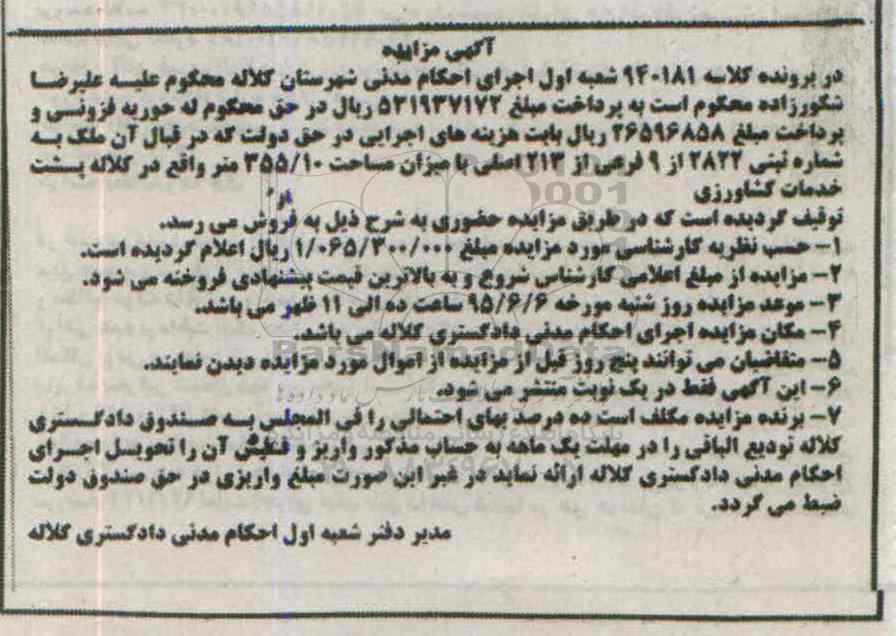 آگهی مزایده
در پرونده کلاسه ۹۴۰۱۸۱ شعبه اول اجرای احکام مدنی شهرستان کلاله محکوم علیه علیرضا
شکورزاده محکوم است به پرداخت مبلغ ۵۳۱۹۳۷۱۷۲ ریال در حق محکوم له حوریه فزونسی و
پرداخت مبلغ ۲۶۵۹۶۸۵۸ ریال بابت هزینه های اجرایی در حق دولت که در قبال آن ملک به
شماره ثبتی ۲۸۲۲ از ۹ فرعی از ۲۱۳ اصلی با میزان مساحت ۳۵۵/۱۰ متر واقع در کلاله پشت
خدمات کشاورزی
توقیف گردیده است که در طریق مزایده حضوری به شرح ذیل به فروش می رسد.
۱- حسب نظریه کارشناسی مورد مزایده مبلغ ۱/۰۶۵/۳۰۰/۰۰۰ ریال اعلام گردیده است.
۲- مزایده از مبلغ اعلامی کارشناس شروع و به بالاترین قیمت پیشنهادی فروخته می شود.
۳- موعد مزایده روز شنبه مورخه ۹۵/۶/۶ ساعت ده الی ۱۱ ظهر می باشد.
۴- مکان مزایده اجرای احکام مدنی دادگستری کلاله می باشد.
۵- متقاضیان می توانند پنج روز قبل از مزایده از اموال مورد مزایده دیدن نمایند.
۶- این آگهی فقط در یک نوبت منتشر می شود.
۷- برنده مزایده مکلف است ده درصد بهای احتمالی را فی المجلس به صندوق دادگستری
کلاله تودیع الباقی را در مهلت یک ماهه به حساب مذکور واریز و فیش آن را تحویل اجرای
احکام مدنی دادگستری کلاله ارائه نماید در غیر این صورت مبلغ واریزی در حق صندوق دولت
ضبط می گردد.
مدیر دفتر شعبه اول احکام مدنی دادگستری کلاله
ParsNamadData